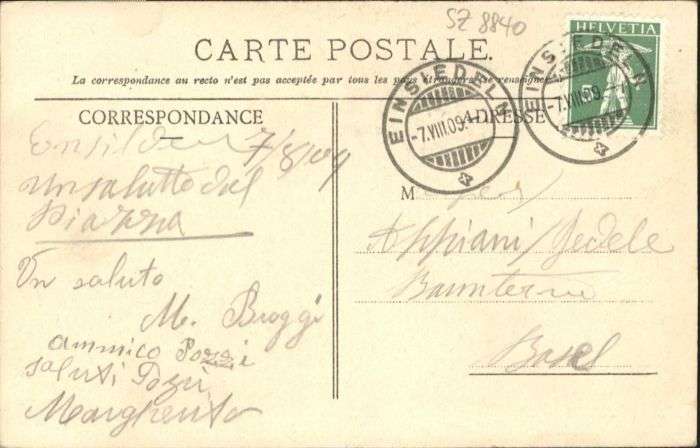 SZ 8840
HELVETIA
CARTE POSTALE.
La correspondance au recto n'est pas acceptée par tous les pays étrangers. (Se renseigner
EINSIEDELN
-7.VIII.09.
EINSIEDELN
-7.VIII.09.
5
CORRESPONDANCE
ADRESSE
7/8/09
Un salutto dal
Piazza
Un saluto
M. Broggi
ammico Pozzi
saluti Pozzi
Margherita
M
Appiani Fedele
Basel